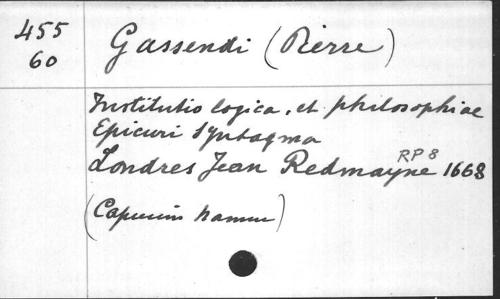 455
60
Gassendi (Pierre)
Institutio logica, et philosophiae
Epicuri Syntagma
RP 8
Londres Jean Redmayne 1668
(Capucins Namur)